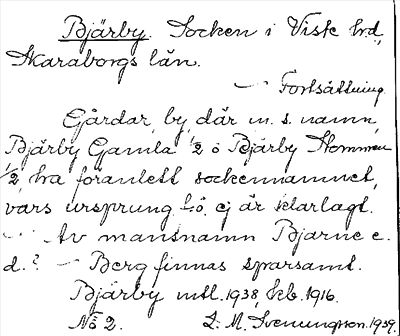 Bjärby. Socken i Viste hrd,
Skaraborgs län.
— Fortsättning.
Gårdar, by, där m. s. namn,
Bjärby Gamla 1/2 o Bjärby Stommen
1/2, ha föranlett sockennamnet,
vars ursprung ej är klarlagt.
Av mansnamn Bjarne e.
d.? — Berg finnas sparsamt.
Bjärby mtl. 1938, feb. 1916.
No 2. L. M. Svenungson. 1939.